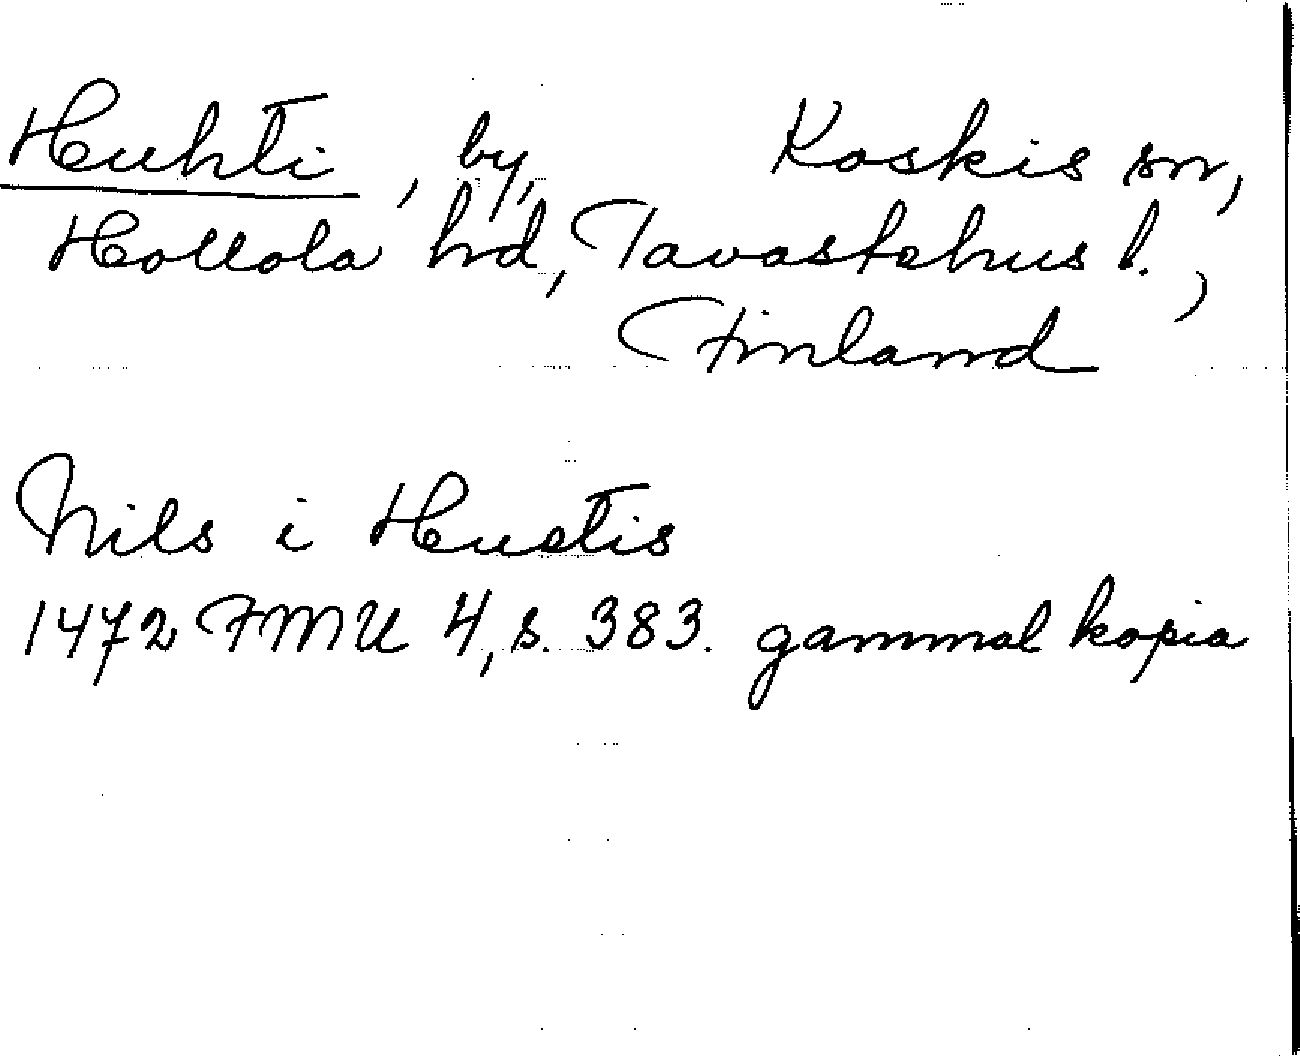 Huhti, by, Koskis sn,
Hollola hd, Tavastehus l.,
Finland
Nils i Hustis
1472 FMU 4, s. 383. gammal kopia